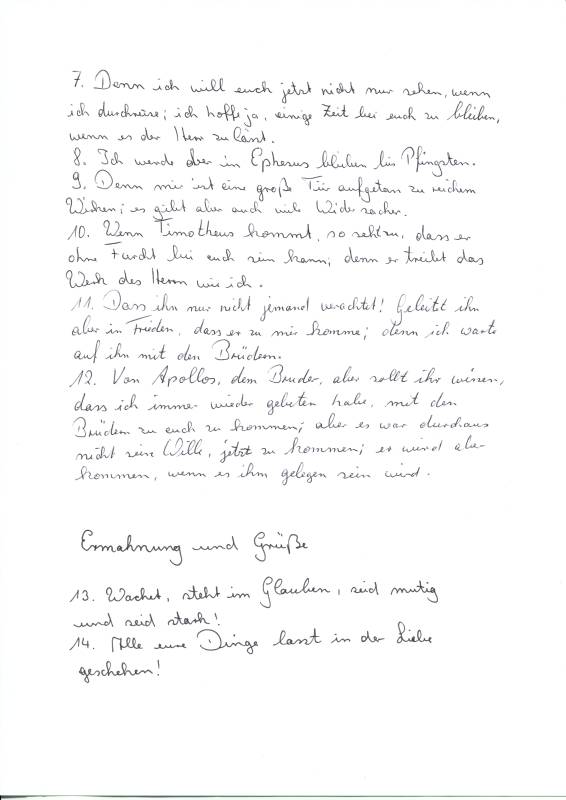 7. Denn ich will euch jetzt nicht nur sehen, wenn
ich durchreise; ich hoffe ja, einige Zeit bei euch zu bleiben,
wenn es der Herr zulässt.
8. Ich werde aber in Ephesus bleiben bis Pfingsten.
9. Denn mir ist eine große Tür aufgetan zu reichem
Wirken; es gibt aber auch viele Widersacher.
10. Wenn Timotheus kommt, so seht zu, dass er
ohne Furcht bei euch sein kann; denn er treibt das
Werk des Herrn wie ich.
11. Dass ihn nur nicht jemand verachtet! Geleitet ihn
aber in Frieden, dass er zu mir komme; denn ich warte
auf ihn mit den Brüdern.
12. Von Apollos, dem Bruder, aber sollt ihr wissen,
dass ich immer wieder gebeten habe, mit den
Brüdern zu euch zu kommen; aber es war durchaus
nicht sein Wille, jetzt zu kommen; er wird aber
kommen, wenn es ihm gelegen sein wird.
Ermahnung und Grüße
13. Wachet, steht im Glauben, seid mutig
und seid stark!
14. Alle eure Dinge lasst in der Liebe
geschehen!